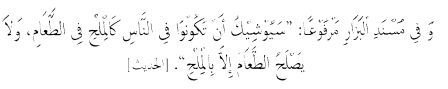 وَ فِي مُسْنَدِ الْبَزَّارِ مَرْفُوعًا: ”سَيُوشِيكُ أَنْ تَكُونُوا فِي النَّاسِ كَالْمِلْحِ فِي الطَّعَامِ، وَلاَ
يَصْلَحُ الطَّعَامُ إِلاَّ بِالْمِلْحِ“. [الحديث]